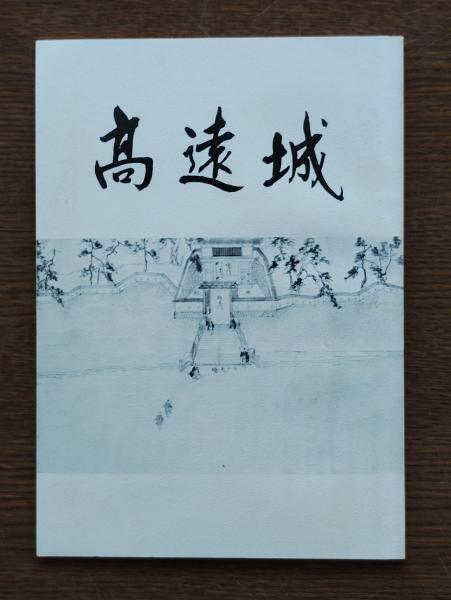 髙遠城